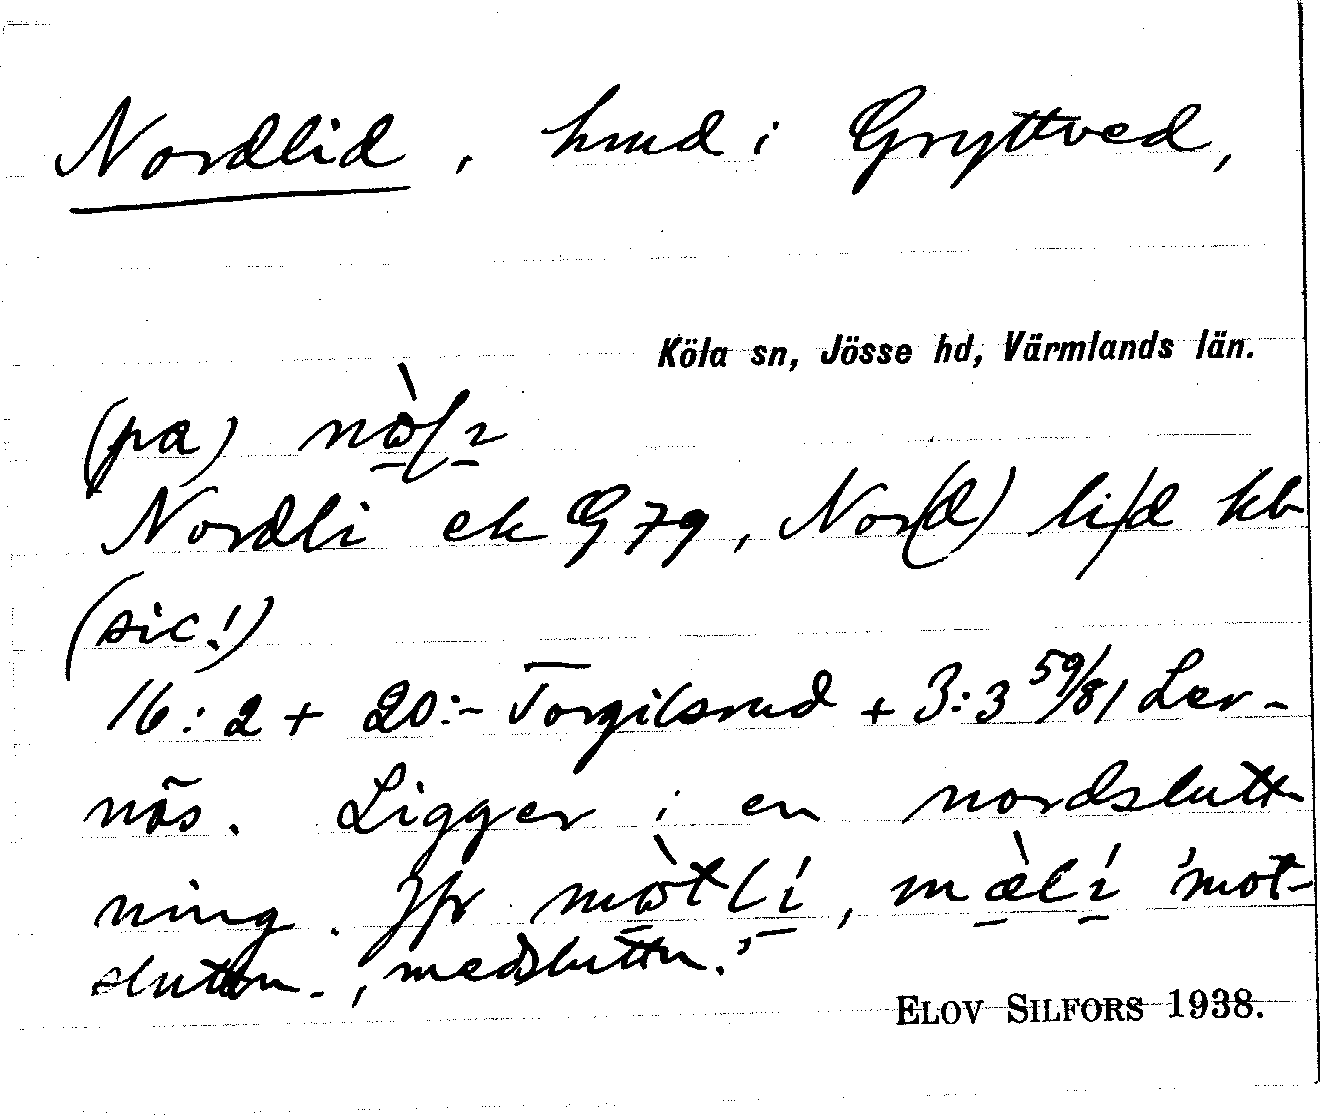 Nordlid, hmd i Gryttved,
Köla sn, Jösse hd, Värmlands län.
(pa)
Nordli ek G 79, Nor(d) li/d kb
(sic!)
16:2 + 20:- Torgilsrud + 3:3 59/81 Ler-
näs. Ligger i en nordslutt
ning. Jfr 'mot-
sluttn., medsluttn.'
ELOV SILFORS 1938.